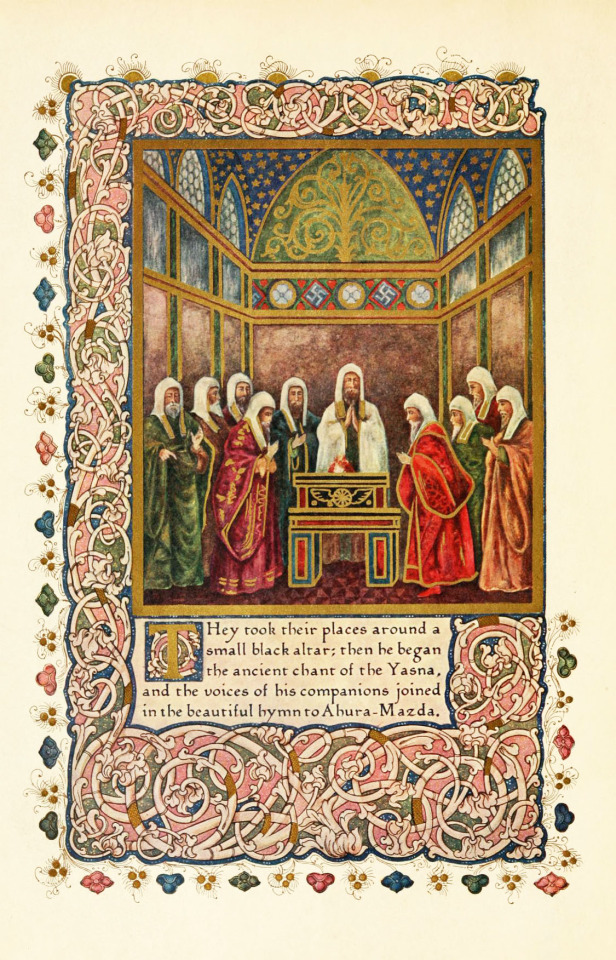 THey took their places around a
small black altar; then he began
the ancient chant of the Yasna,
and the voices of his companions joined
in the beautiful hymn to Ahura-Mazda.